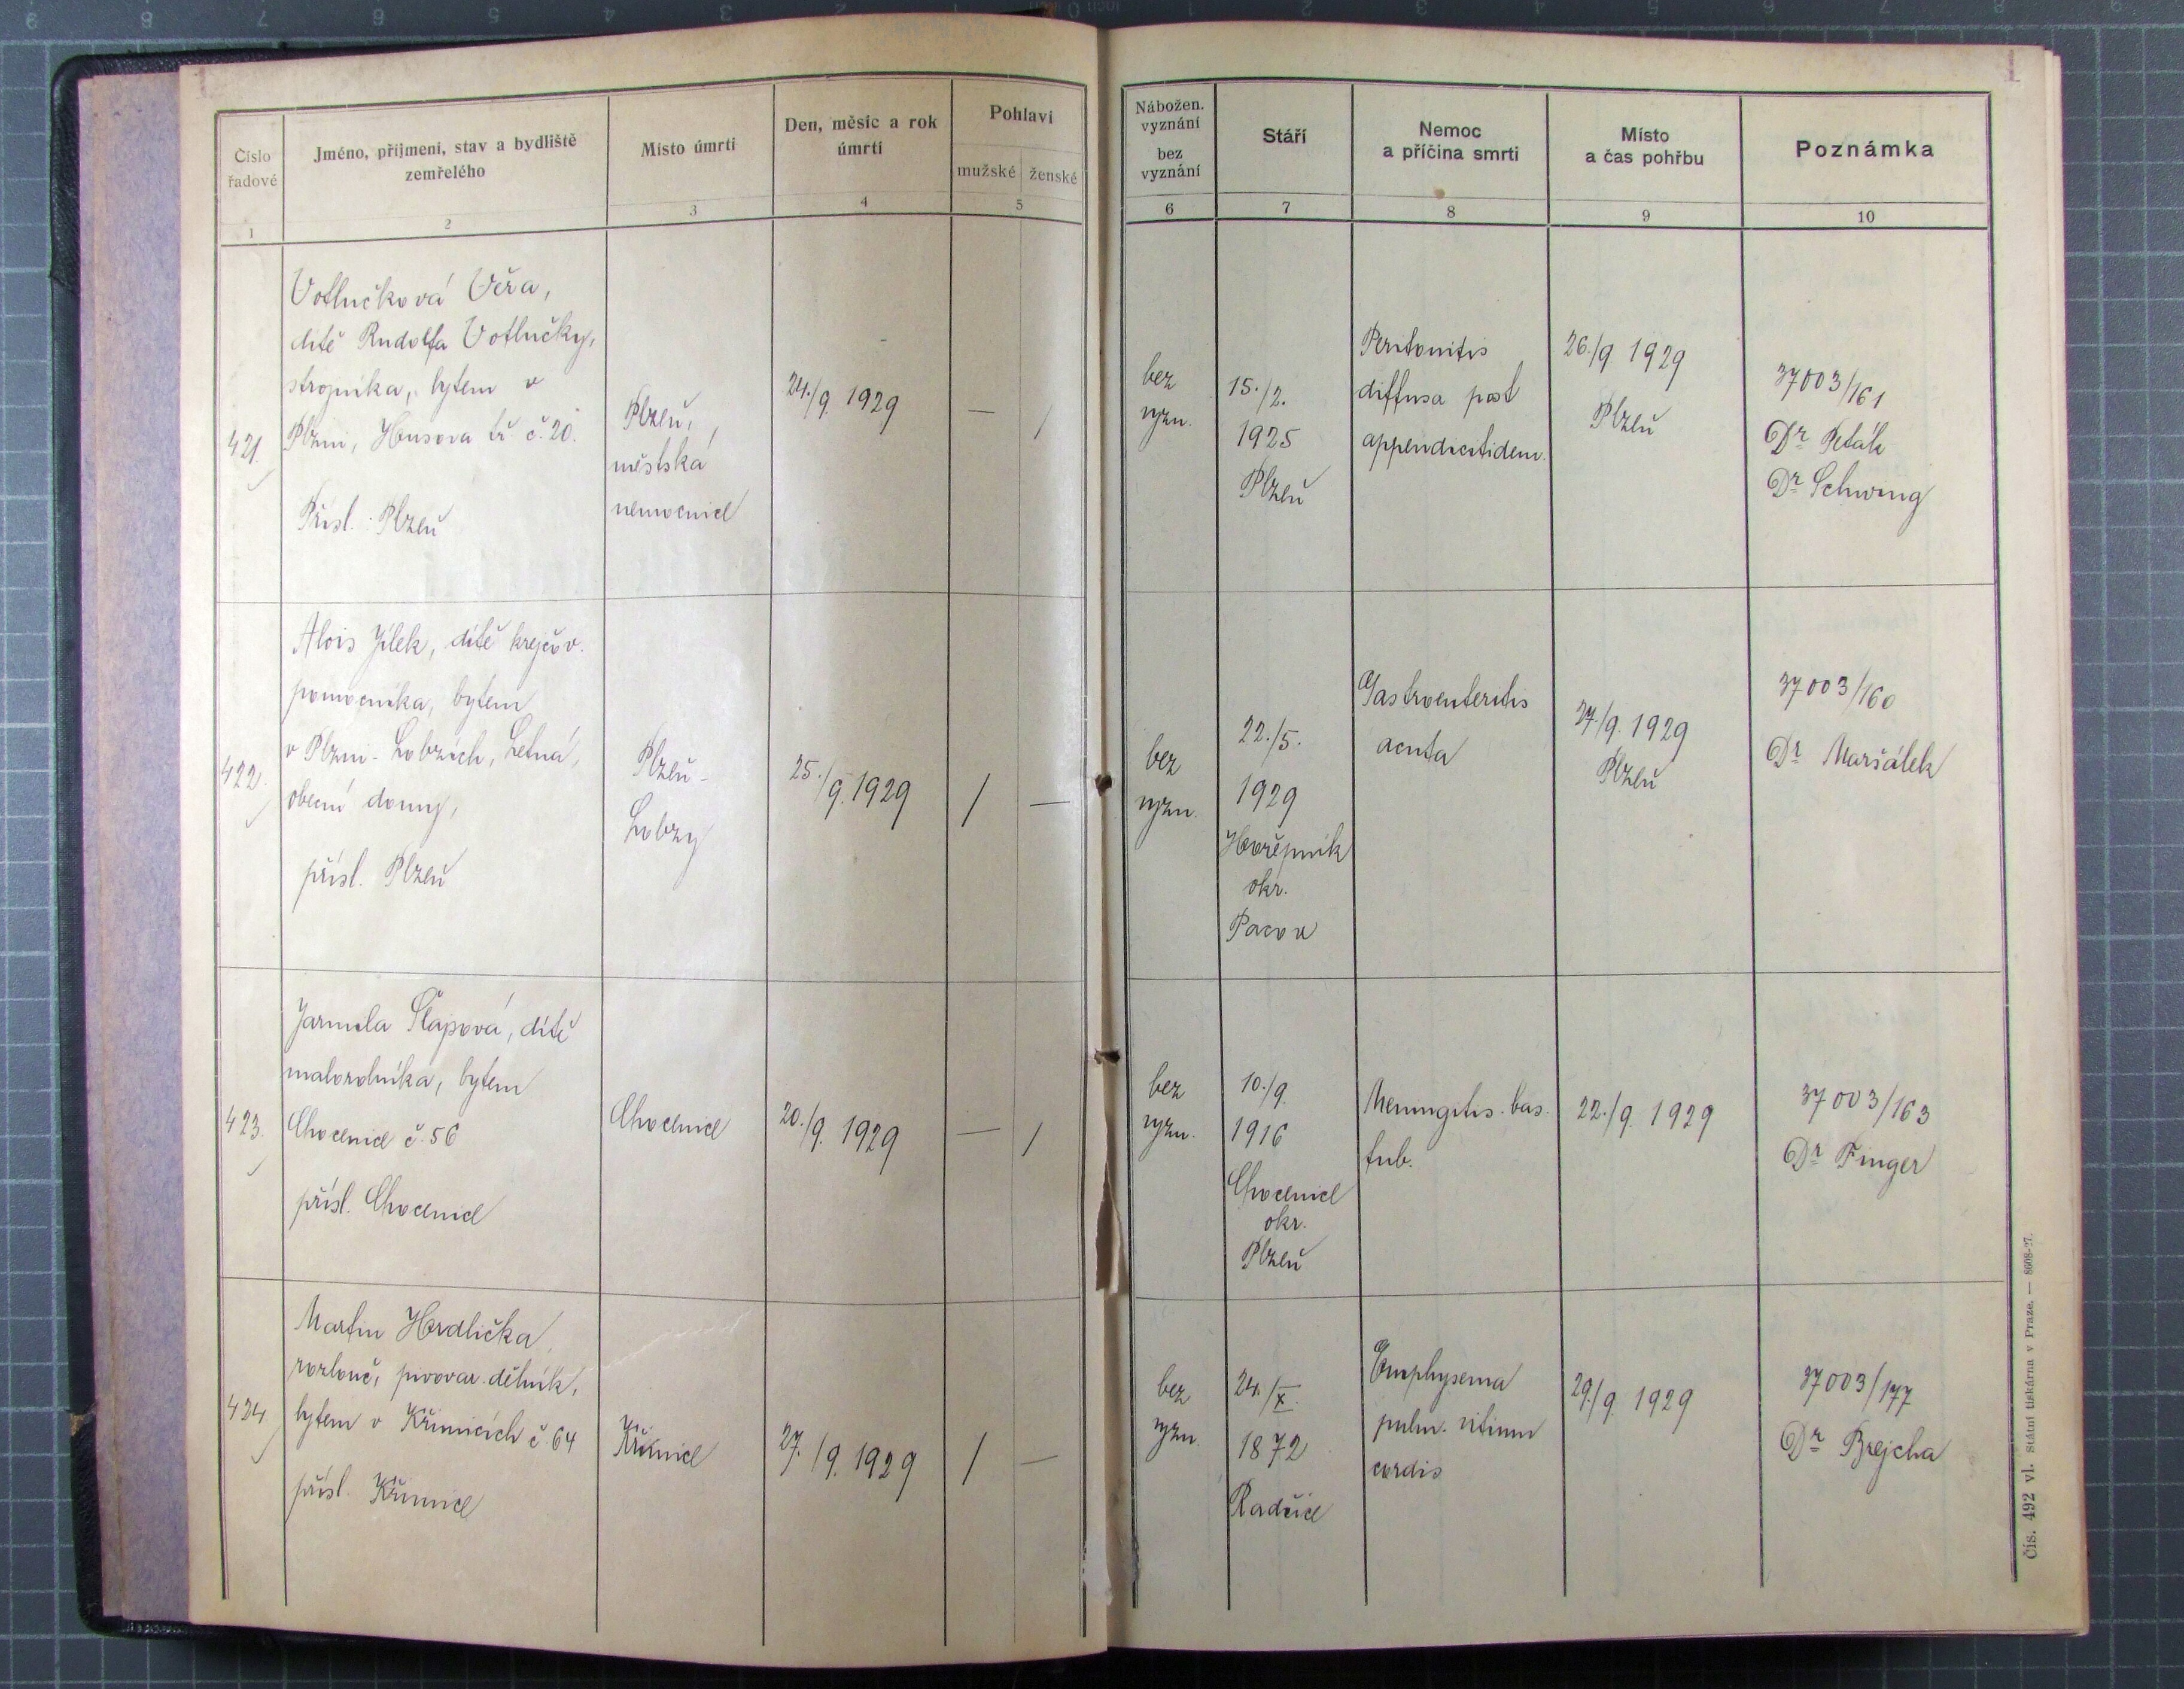 Číslo řadové
Jméno, příjmení, stav a bydliště
zemřelého
Místo úmrtí
Den, měsíc a rok
úmrtí
Pohlaví
mužské ženské
1
2
3
4
5
Nábožen.
vyznání
bez
vyznání
Stáří
Nemoc
a příčina smrti
Místo
a čas pohřbu
Poznámka
6
7
8
9
10
421.
Votlučková Věra,
dítě Rudolfa Votlučky,
strojníka, bytem v
Plzni, Husova tř. č. 20.
Přísl.: Plzeň
Plzeň,
městská
nemocnice
24./9. 1929
— /
bez
vyzn.
15./2.
1925
Plzeň
Peritonitis
diffusa post
appendicitidem.
26./9. 1929
Plzeň
37003/161
Dr Peták
Dr Schwing
422.
Alois Jílek, dítě krejčov.
pomocníka, bytem
v Plzni-Lobzích, Letná,
obecní domy,
přísl. Plzeň
Plzeň-
Lobzy
25./9. 1929
/ —
bez
vyzn.
22./5.
1929
Hořepník
okr.
Pacov
Gastroenteritis
acuta
27/9. 1929
Plzeň
37003/160
Dr Maršálek
423.
Jarmila Šlapová, dítě
malorolníka, bytem
Chocenice č. 56
přísl. Chocenice
Chocenice
20./9. 1929
— /
bez
vyzn.
10./9.
1916
Chocenice
okr.
Plzeň
Meningitis. bas.
tub.
22./9. 1929
37003/163
Dr Finger
424.
Martin Hrdlička,
rozlouč, pivovar. dělník,
bytem v Křimicích č. 64
přísl. Křimice
Křimice
27. /9. 1929
/ —
bez
vyzn.
24./X.
1872
Radčice
Emphysema
pulm. vitium
cordis
29./9. 1929
37003/177
Dr Brejcha
Čís. 492 vl. Státní tiskárna v Praze. — 8608-27.